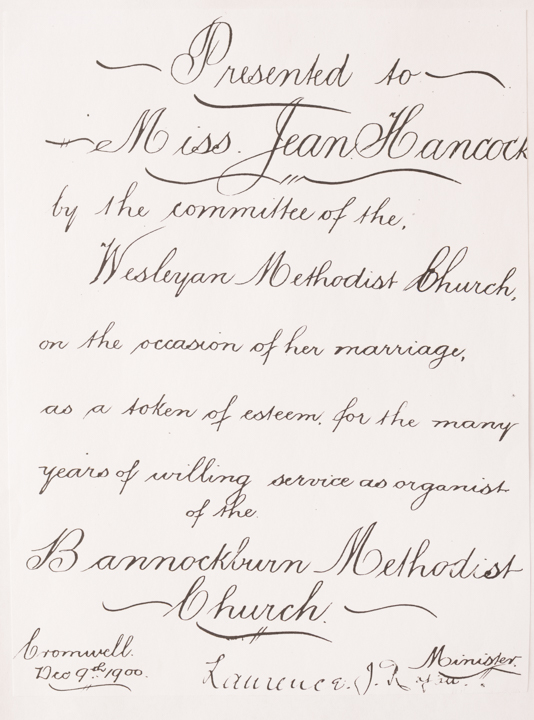 Presented to
Miss. Jean Hancock
by the committee of the,
Wesleyan Methodist Church,
on the occasion of her marriage,
as a token of esteem, for the many
years of willing service as organist
of the
Bannockburn Methodist
Church.
Cromwell.
Dec 9th 1900.
Minister.
Laurence. J.